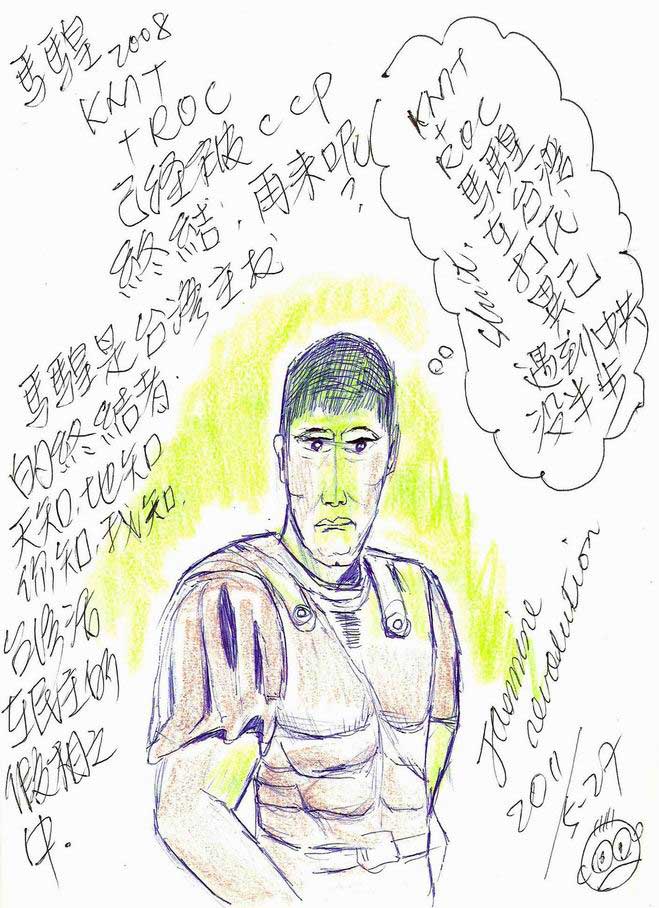 馬騜 2008
KMT
+ROC
己經被 CCP
終結,再來呢?
馬騜是台灣主权
的終結者.
天知.地知
你知.我知.
台灣活
在民主的
假相之
中.
KMT
+
ROC
馬騜
在台灣
打化
異己
遇到中共
没半步
Jasmine
revolution
2011/5-27